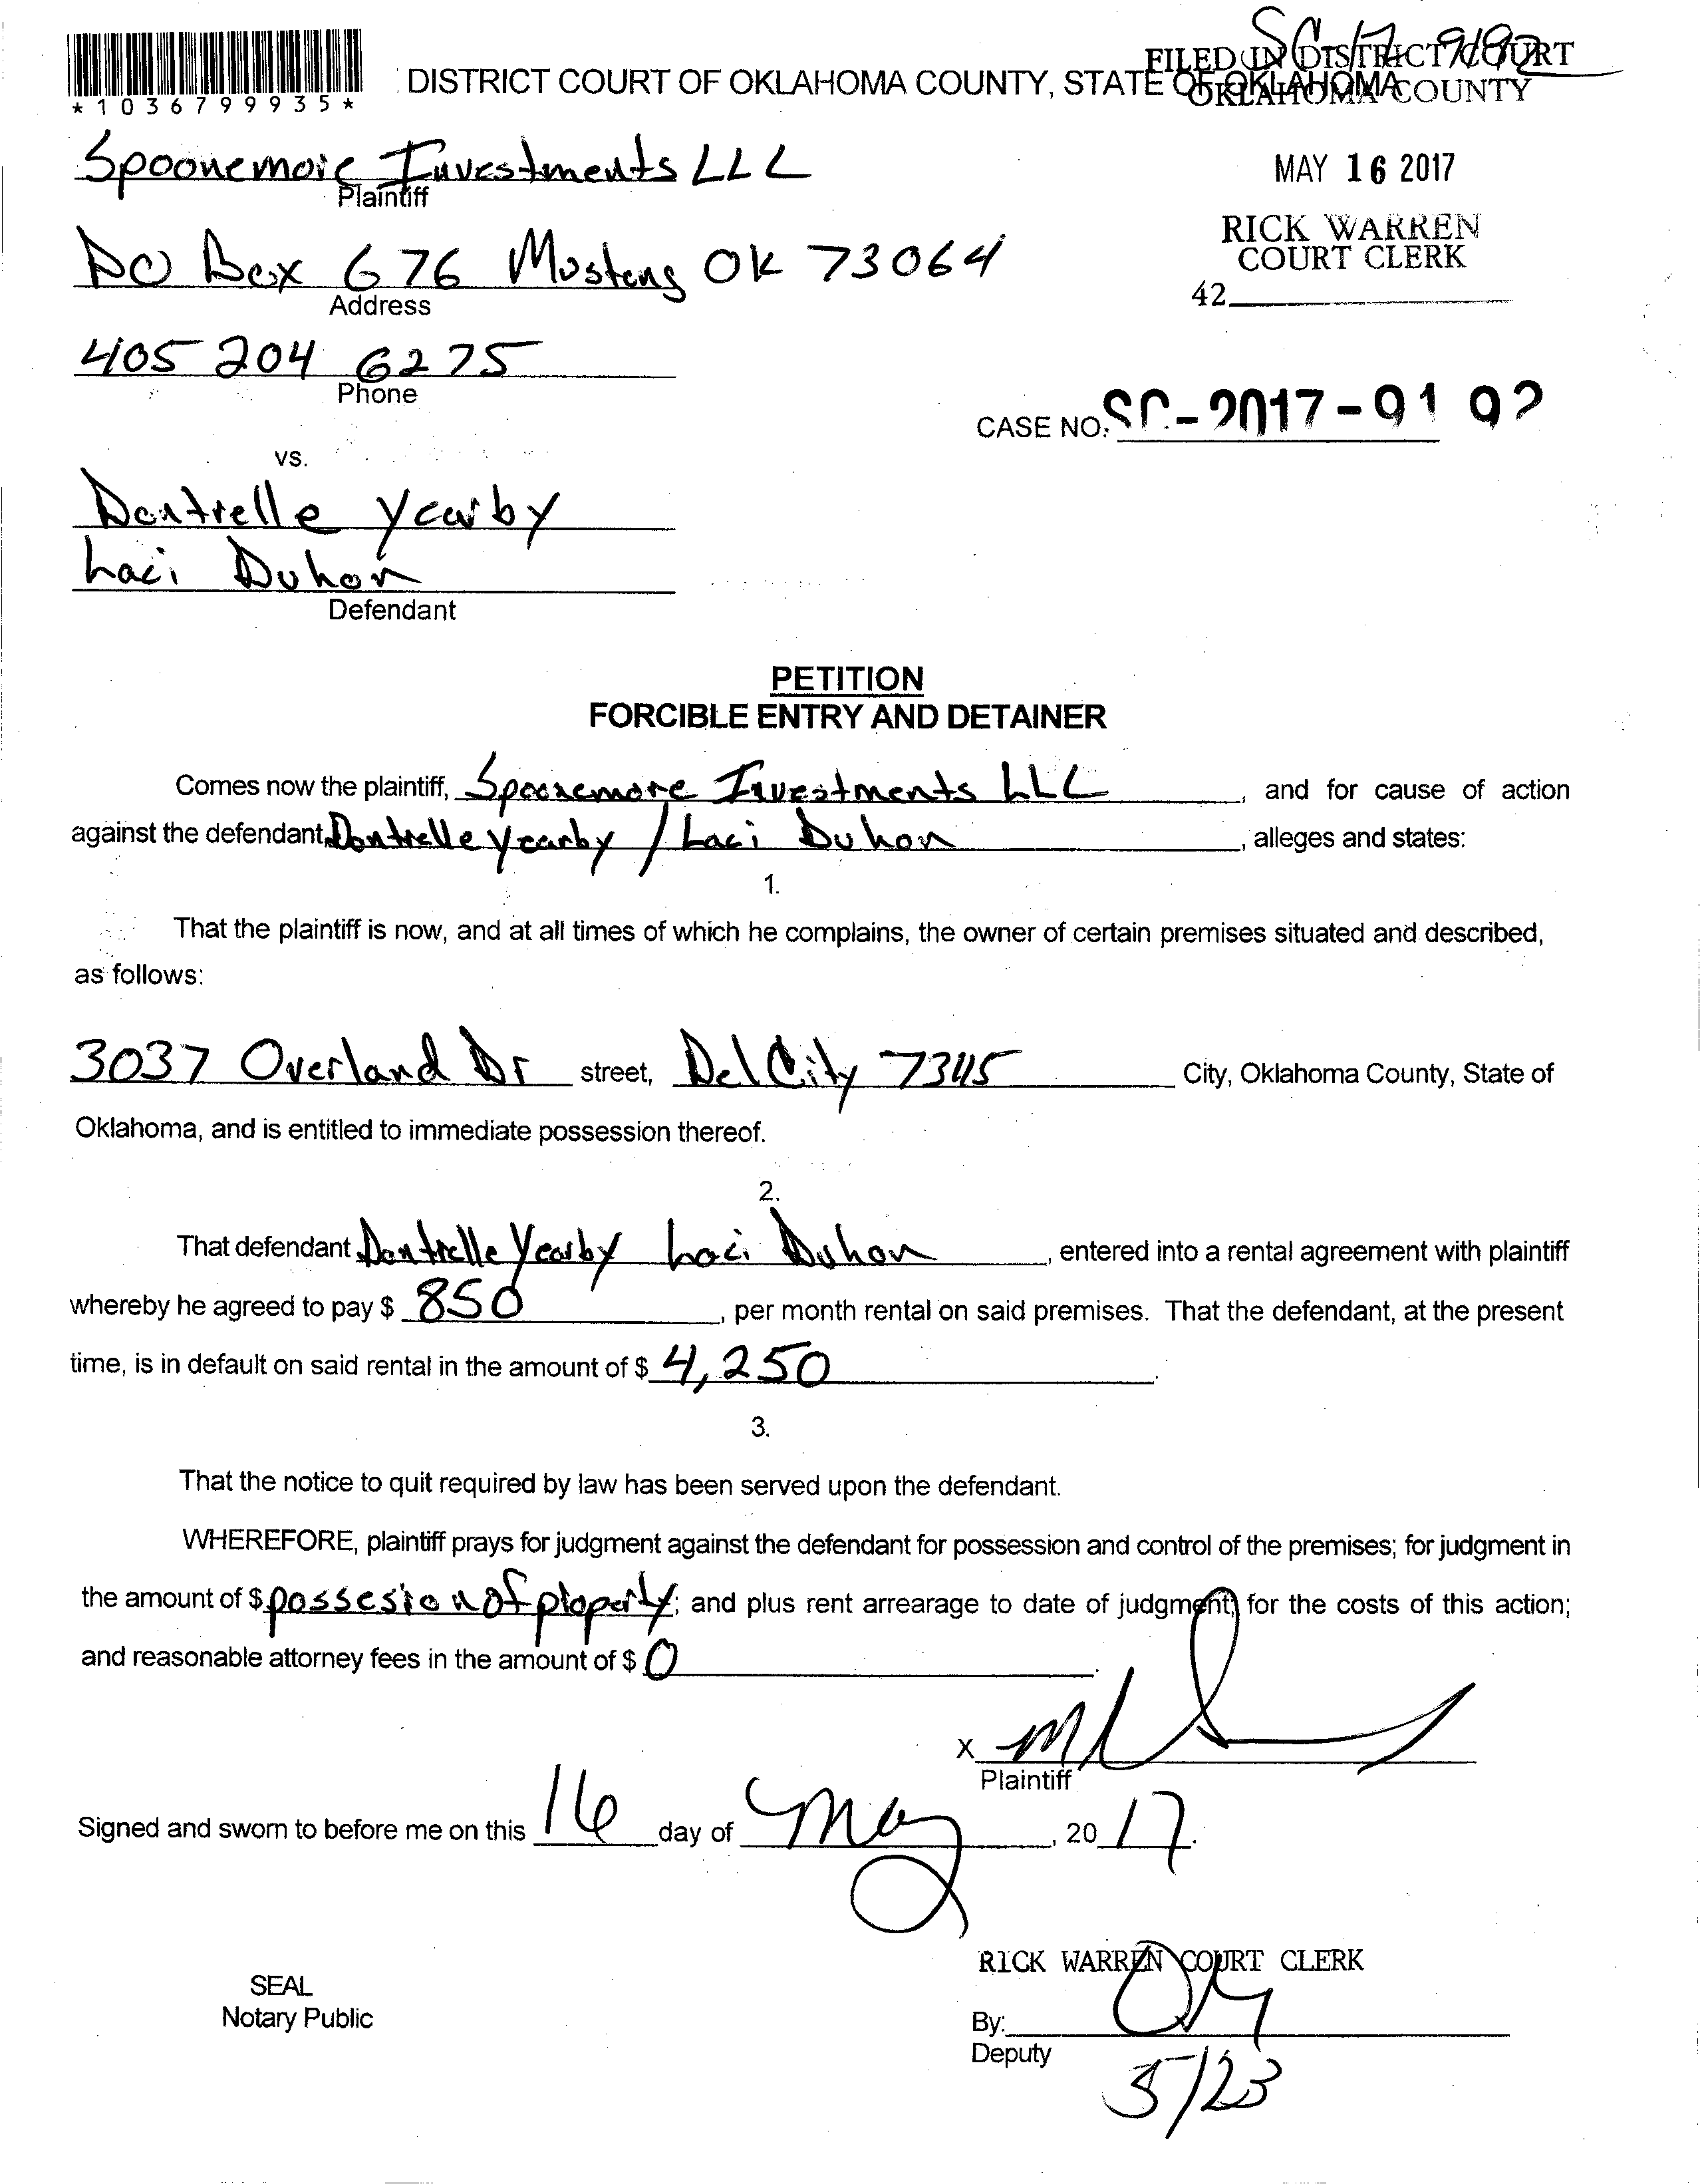 SC 17 9192
FILED IN DISTRICT COURT
OKLAHOMA COUNTY
DISTRICT COURT OF OKLAHOMA COUNTY, STATE OF OKLAHOMA
*1036799935*
Spoonemore Investments LLC
Plaintiff
MAY 16 2017
RICK WARREN
COURT CLERK
42
PO Box 676 Mustang OK 73064
Address
405 204 6275
Phone
CASE NO. SC-2017-9192
vs.
Dontrelle Yearby
Laci Duhon
Defendant
PETITION
FORCIBLE ENTRY AND DETAINER
Comes now the plaintiff, Spoonemore Investments LLC, and for cause of action
against the defendant, Dontrelle Yearby / Laci Duhon, alleges and states:
1.
That the plaintiff is now, and at all times of which he complains, the owner of certain premises situated and described,
as follows:
3037 Overland Dr street, Del City 73115 City, Oklahoma County, State of
Oklahoma, and is entitled to immediate possession thereof.
2.
That defendant Dontrelle Yearby Laci Duhon, entered into a rental agreement with plaintiff
whereby he agreed to pay $ 850, per month rental on said premises. That the defendant, at the present
time, is in default on said rental in the amount of $ 4,250.
3.
That the notice to quit required by law has been served upon the defendant.
WHEREFORE, plaintiff prays for judgment against the defendant for possession and control of the premises; for judgment in
the amount of $ possesion of property; and plus rent arrearage to date of judgment; for the costs of this action;
and reasonable attorney fees in the amount of $ 0.
X
Plaintiff
Signed and sworn to before me on this 16 day of May, 20 17.
RICK WARREN COURT CLERK
SEAL
Notary Public
By:
Deputy
5/23